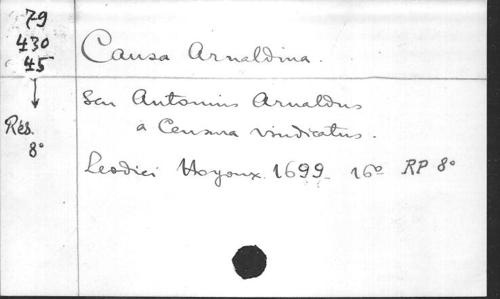 79
430
45
Causa Arnaldina.
seu Antonius Arnaldus
a Censura vindicatus.
Rés.
8°
Leodici Hoyoux 1699_ 16° RP 8°